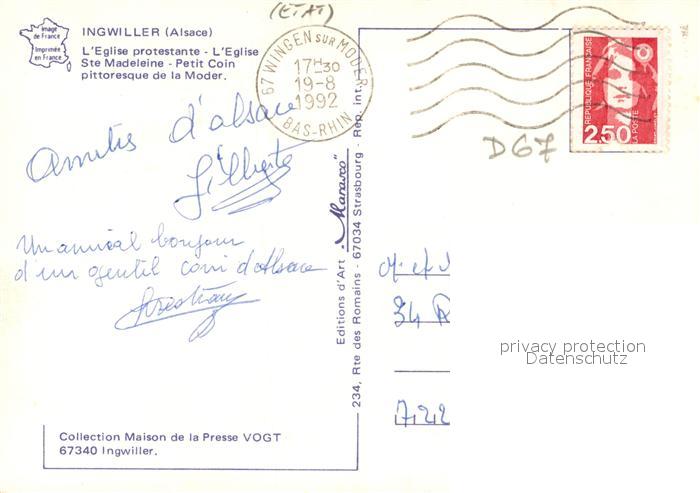 (ETAT)
Image
de France
Imprimée
en France
INGWILLER (Alsace)
L'Eglise protestante - L'Eglise
Ste Madeleine - Petit Coin
pittoresque de la Moder.
67 WINGEN SUR MODER
17H30
19-8
1992
BAS-RHIN
REPUBLIQUE FRANÇAISE
2,50
LA POSTE
D67
Amitiés d'alsace
Gilberte
Un amical bonjour
d'un gentil coin d'Alsace
Editions d'Art "Marasco"
234, Rte des Romains - 67034 Strasbourg - Rep. int.
M. et
34
722
privacy protection
Datenschutz
Collection Maison de la Presse VOGT
67340 Ingwiller.